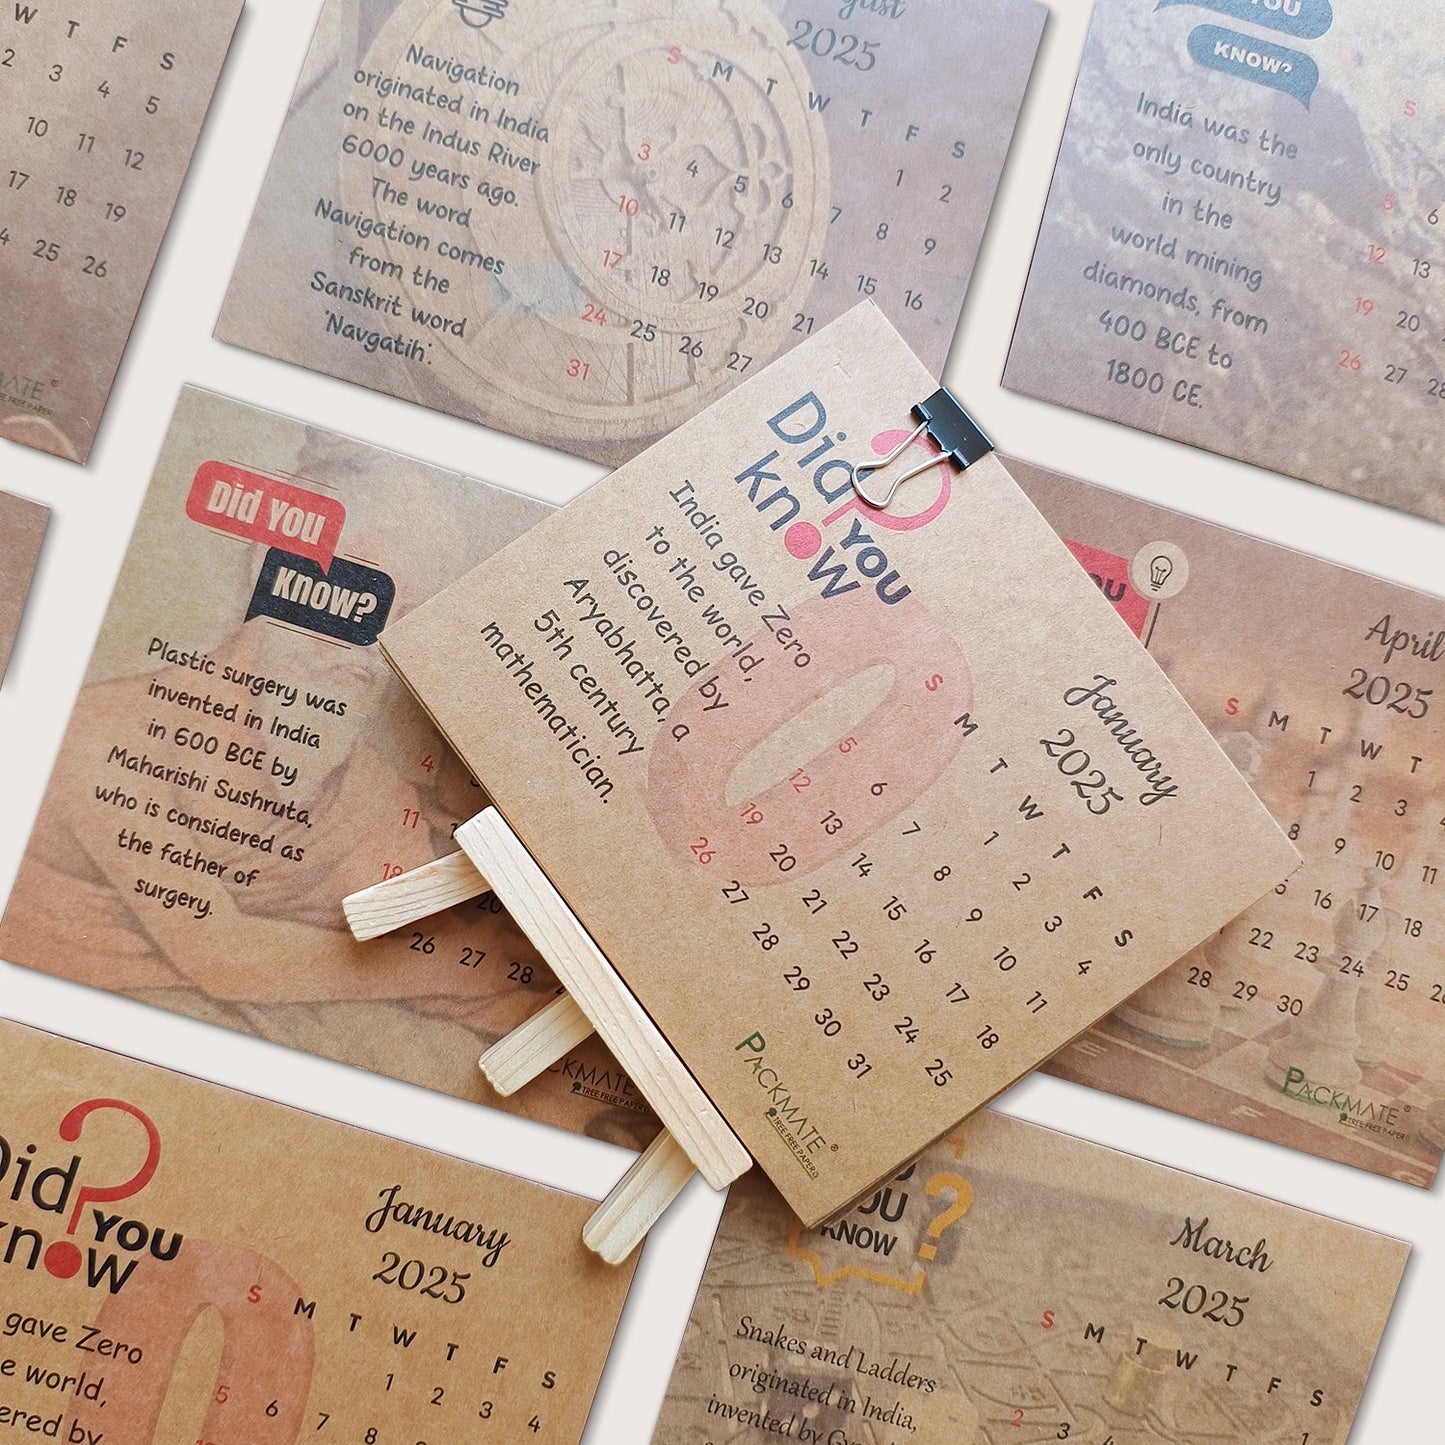 W T F S
2 3 4 5
10 11 12
17 18 19
25 26
Navigation
originated in India
on the Indus River
6000 years ago.
The word
Navigation comes
from the
Sanskrit word
'Navgatih'.
2025
S M T W T F S
1 2
3 4 5 6 7 8 9
10 11 12 13 14 15 16
17 18 19 20 21
24 25 26 27
31
YOU
KNOW?
India was the
only country
in the
world mining
diamonds, from
400 BCE to
1800 CE.
S
5 6
12 13
19 20
26 27
Did You
Know?
Plastic surgery was
invented in India
in 600 BCE by
Maharishi Sushruta,
who is considered as
the father of
surgery.
4
11
18
20
26 27 28
TREE FREE PAPER
Did
YOU
know
India gave Zero
to the world,
discovered by
Aryabhatta, a
5th century
mathematician.
January
2025
S M T W T F S
1 2 3 4
5 6 7 8 9 10 11
12 13 14 15 16 17 18
19 20 21 22 23 24 25
26 27 28 29 30 31
PACKMATE®
TREE FREE PAPER
April
2025
S M T W T
1 2 3
8 9 10 11
15 16 17 18
22 23 24 25
28 29 30
PACKMATE®
TREE FREE PAPER
YOU
know
gave Zero
world,
by
January
2025
S M T W T F S
1 2 3 4
5 6 7 8
KNOW
?
Snakes and Ladders
originated in India,
invented by
March
2025
S M T W T F S
1
2 3 4